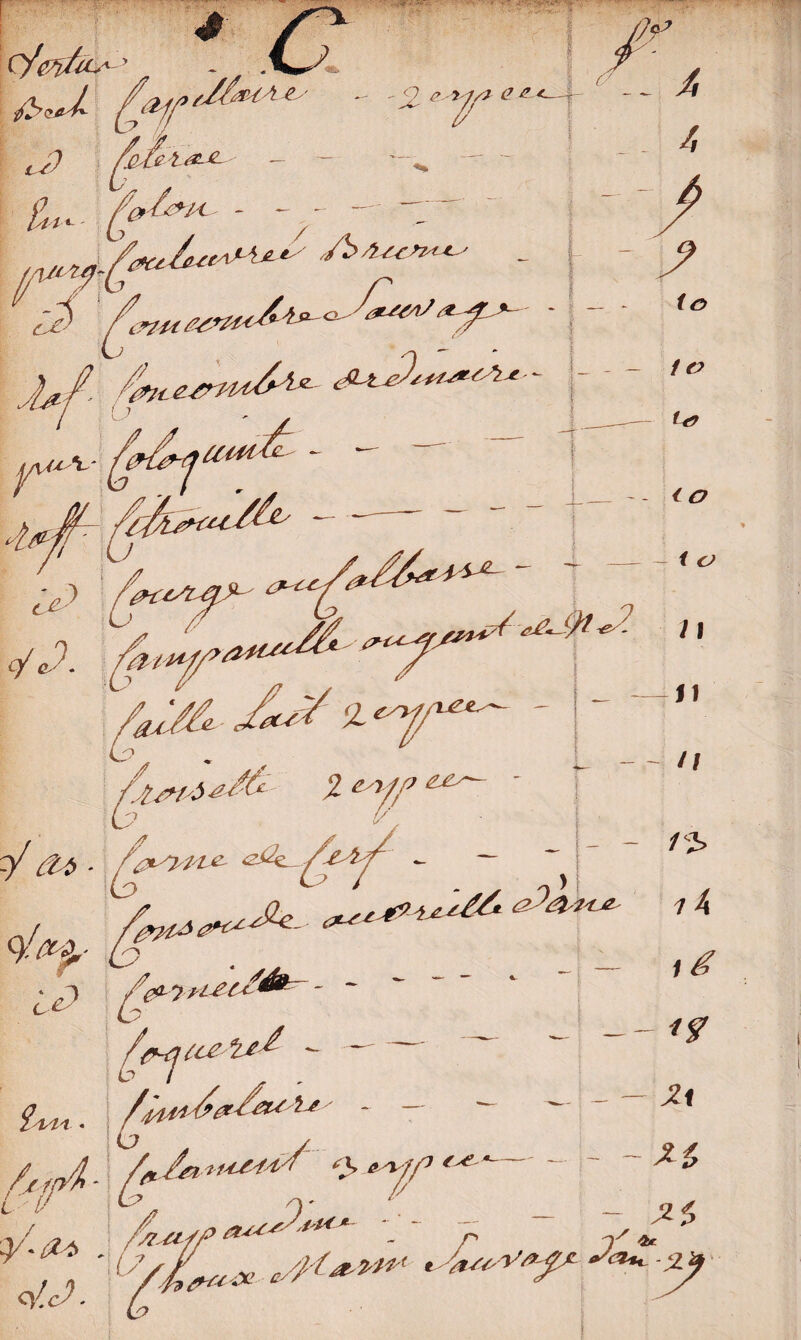 C fo.
Vertus
Bech Capillaire - - 2 espece - - 4
id Ceterac - - - - - - 4
Em. Coton - - - - - - - 9
purg. Couleuvreé Brione - - - 9
id Comcombre Sauvage - - - 10
Raf. Concombre ordinaire - - - - 10
pur. Coloquinte - - - - - 10
Raff. Citrouille - - - - - - - - 10
id Courge ou Calbasse - - - - 10
Vd. Campanulle ou gant de Nd. 11
Caille Lait 2 especes - - - 11
Croisette 2 especes - - - - 11
Vas. Corne de Cerf - - - - - 13
V.as. Consoude ou oreille d'àne 14
id Corneille - - - - - - - - 16
Coquerel - - - - - - - 18
Em. Cimbalaire - - - - - - 21
Ceph. Calament 3 especes - - - 23
V.as. Crapaudine - - - - - 23
V.d. Choux Marin Sauvage d'anre. 29